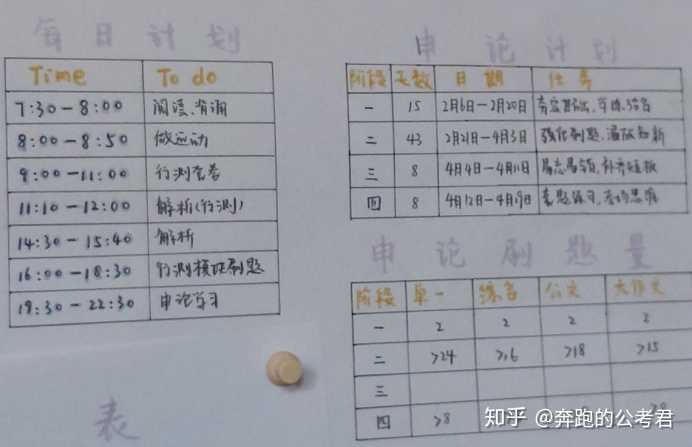 每日计划
Time To do
7:30-8:00 阅读、背诵
8:00-8:50 做运动
9:00-11:00 行测套卷
11:10-12:00 解析(行测)
14:30-15:40 解析
16:00-18:30 行测模块刷题
19:30-22:30 申论学习
表
申论计划
阶段 天数 日期 任务
一 15 2月6日-2月20日
二 43 2月21日-4月3日 强化刷题、温故知新
三 8 4月4日-4月11日 补齐短板
四 8 4月12日-4月19日
申论刷题量
阶段 单一 综合 公文 大作文
一 2 2 2 2
二 >24 >16 >18 >15
三
四 >8
知乎 @奔跑的公考君